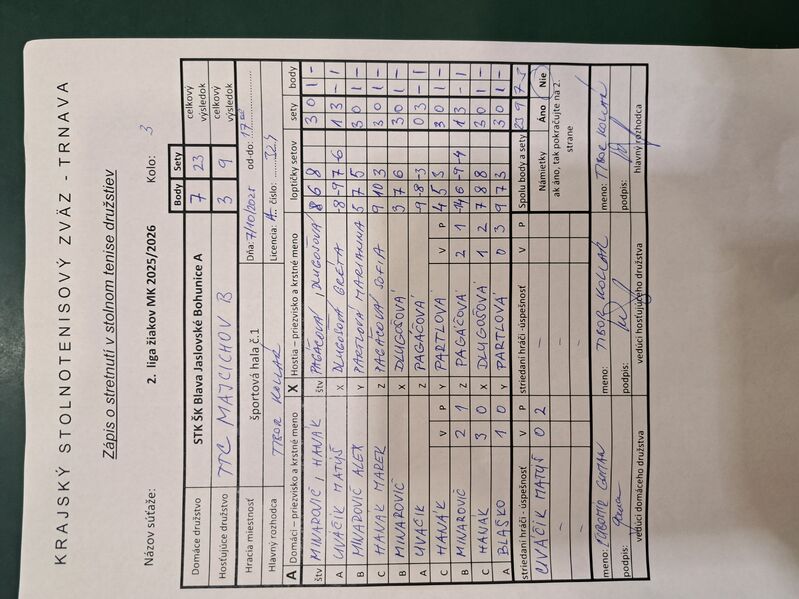 KRAJSKÝ STOLNOTENISOVÝ ZVÄZ - TRNAVA
Zápis o stretnutí v stolnom tenise družstiev
Názov súťaže: 2. liga žiakov MK 2025/2026 Kolo: 3
Body Sety
Domáce družstvo STK ŠK Blava Jaslovské Bohunice A 7 23 celkový výsledok
Hosťujúce družstvo TTC MAJCICHOV B 3 9 celkový výsledok
Hracia miestnosť športová hala č.1 Dňa: 7/10/2025 od-do: 17.00
Hlavný rozhodca TIBOR KOLLÁR Licencia: A číslo:
A Domáci – priezvisko a krstné meno X Hostia – priezvisko a krstné meno loptičky setov sety body
štv MINAROVIČ, HANÁK štv PAGÁČOVÁ, DLUGOŠOVÁ 8 6 8 3 0 1 -
A UVÁČIK MATÚŠ X DLUGOŠOVÁ GRÉTA -8 -9 7 -6 1 3 - 1
B MINAROVIČ ALEX Y PARTLOVÁ MARIANNA 5 7 5 3 0 1 -
C HANÁK MAREK Z PAGÁČOVÁ SOFIA 9 10 3 3 0 1 -
B MINAROVIČ X DLUGOŠOVÁ 3 7 6 3 0 1 -
A UVÁČIK Z PAGÁČOVÁ -9 -8 -3 0 3 - 1
C HANÁK V P Y PARTLOVÁ V P 4 5 3 3 0 1 -
B MINAROVIČ 2 1 Z PAGÁČOVÁ 2 1 6 -9 -4 1 3 - 1
C HANÁK 3 0 X DLUGOŠOVÁ 1 2 7 8 8 3 0 1 -
A BLAŠKO 1 0 Y PARTLOVÁ 0 3 9 7 3 3 0 1 -
striedaní hráči - úspešnosť V P striedaní hráči - úspešnosť V P Spolu body a sety 23 9 7 3
UVÁČIK MATÚŠ 0 2 – – Námietky Áno Nie
– – ak áno, tak pokračujte na 2. strane
– –
meno: ĽUBOMÍR meno: TIBOR KOLLÁR meno: TIBOR KOLLÁR
podpis: podpis: podpis:
vedúci domáceho družstva vedúci hosťujúceho družstva hlavný rozhodca